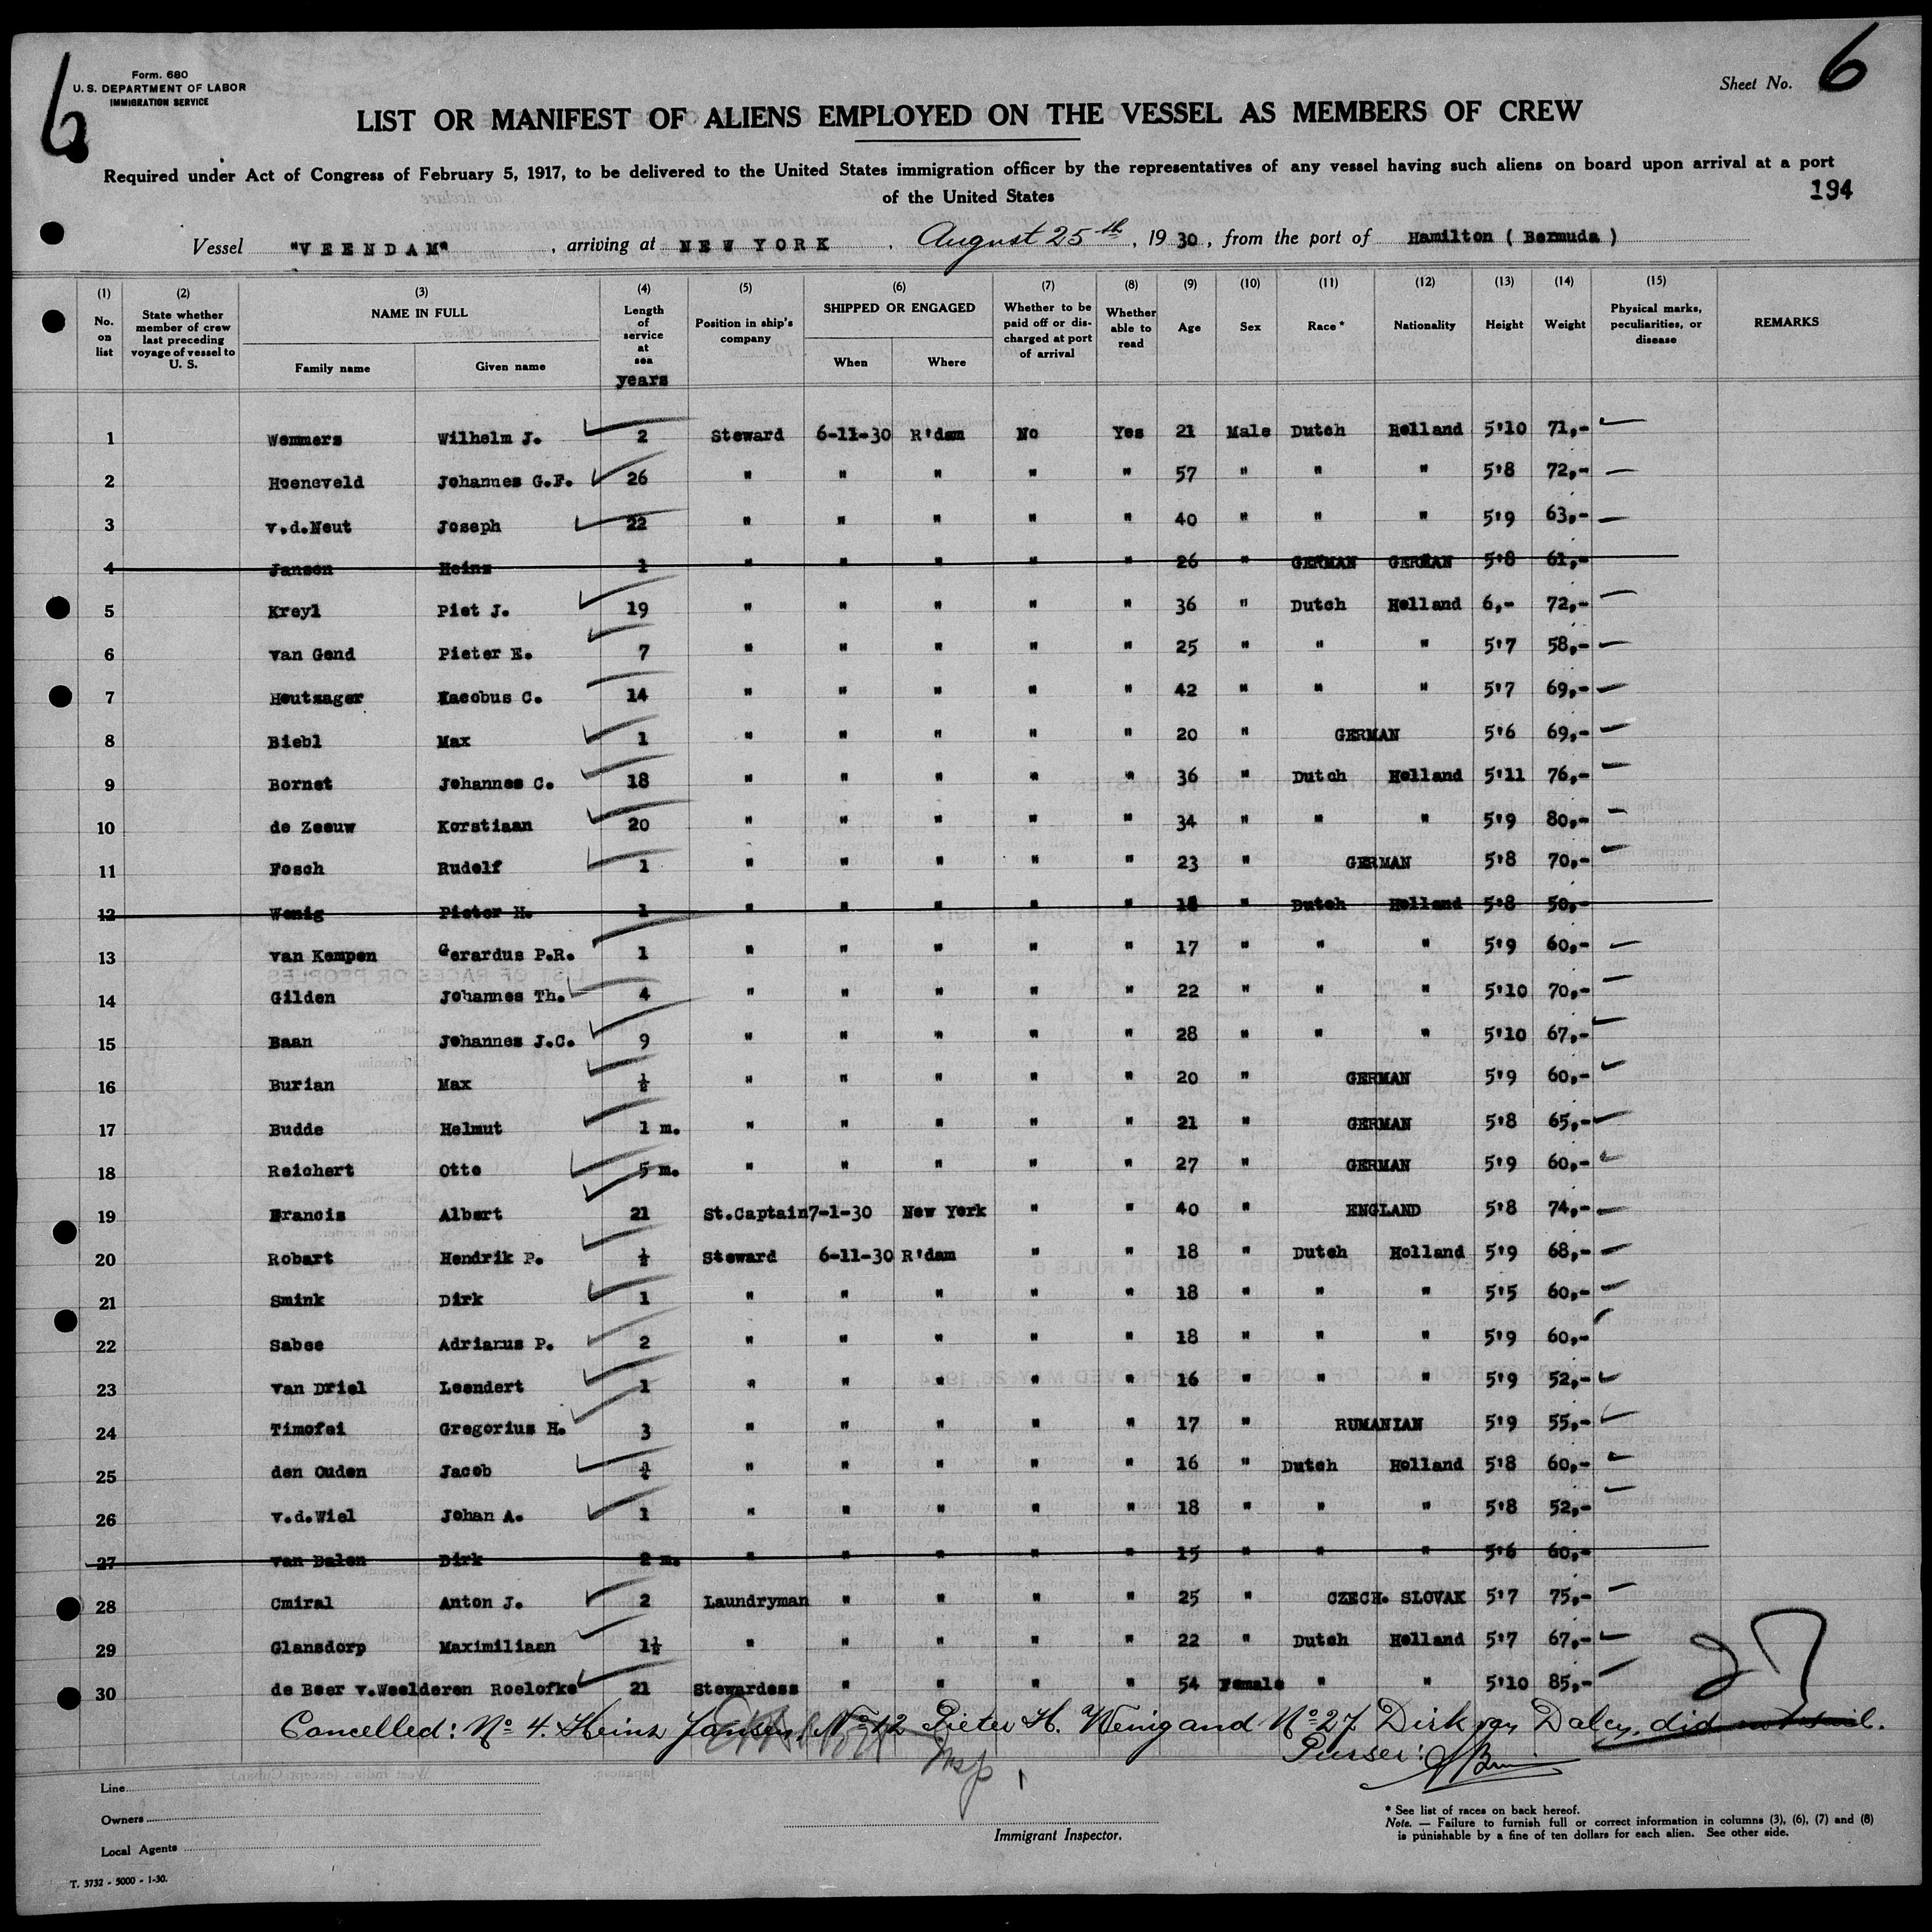 6
Form. 680
U. S. DEPARTMENT OF LABOR
IMMIGRATION SERVICE
Sheet No. 6
LIST OR MANIFEST OF ALIENS EMPLOYED ON THE VESSEL AS MEMBERS OF CREW
Required under Act of Congress of February 5, 1917, to be delivered to the United States immigration officer by the representatives of any vessel having such aliens on board upon arrival at a port
of the United States
194
Vessel "VEENDAM", arriving at NEW YORK, August 25th, 1930, from the port of Hamilton ( Bermuda )
(1) No. on list (2) State whether member of crew last preceding voyage of vessel to U. S. (3) NAME IN FULL Family name Given name (4) Length of service at sea years (5) Position in ship's company (6) SHIPPED OR ENGAGED When Where (7) Whether to be paid off or discharged at port of arrival (8) Whether able to read (9) Age (10) Sex (11) Race * (12) Nationality (13) Height (14) Weight (15) Physical marks, peculiarities, or disease REMARKS
1 Wemmers Wilhelm J. 2 Steward 6-11-30 R'dam No Yes 21 Male Dutch Holland 5'10 71,-
2 Hoeneveld Johannes G.F. 26 " " " " " 57 " " " 5'8 72,-
3 v.d.Neut Joseph 22 " " " " " 40 " " " 5'9 63,-
4 Jansen Heinz 1 " " " " " 26 " GERMAN GERMAN 5'8 61,-
5 Kreyl Piet J. 19 " " " " " 36 " Dutch Holland 6,- 72,-
6 van Gend Pieter E. 7 " " " " " 25 " " " 5'7 58,-
7 Houtzager Jacobus C. 14 " " " " " 42 " " " 5'7 69,-
8 Biebl Max 1 " " " " " 20 " GERMAN 5'6 69,-
9 Bornet Johannes C. 18 " " " " " 36 " Dutch Holland 5'11 76,-
10 de Zeeuw Korstiaan 20 " " " " " 34 " " " 5'9 80,-
11 Fosch Rudolf 1 " " " " " 23 " GERMAN 5'8 70,-
12 Wenig Pieter H. 1 " " " " " 18 " Dutch Holland 5'8 50,-
13 van Kempen Gerardus P.R. 1 " " " " " 17 " " " 5'9 60,-
14 Gilden Johannes Th. 4 " " " " " 22 " " " 5'10 70,-
15 Baan Johannes J.C. 9 " " " " " 28 " " " 5'10 67,-
16 Burian Max ½ " " " " " 20 " GERMAN 5'9 60,-
17 Budde Helmut 1 m. " " " " " 21 " GERMAN 5'8 65,-
18 Reichert Otto 5 m. " " " " " 27 " GERMAN 5'9 60,-
19 Francis Albert 21 St.Captain 7-1-30 New York " " 40 " ENGLAND 5'8 74,-
20 Robart Hendrik P. ½ Steward 6-11-30 R'dam " " 18 " Dutch Holland 5'9 68,-
21 Smink Dirk 1 " " " " " 18 " " " 5'5 60,-
22 Sabee Adrianus P. 2 " " " " " 18 " " " 5'9 60,-
23 van Driel Leendert 1 " " " " " 16 " " " 5'9 52,-
24 Timofei Gregorius H. 3 " " " " " 17 " RUMANIAN 5'9 55,-
25 den Ouden Jacob " " " " " 16 " Dutch Holland 5'8 60,-
26 v.d.Wiel Johan A. 1 " " " " " 18 " " " 5'8 52,-
27 van Dalen Dirk 2 m. " " " " " 15 " " " 5'6 60,-
28 Cmiral Anton J. 2 Laundryman " " " " 25 " CZECH. SLOVAK 5'7 75,-
29 Glansdorp Maximiliaan 1½ " " " " " 22 " Dutch Holland 5'7 67,-
30 de Beer v.Weelderen Roelofke 21 Stewardess " " " " 54 Female " " 5'10 85,-
27
Cancelled: No 4. Heinz Jansen, No 12 Pieter H. Wenig and No 27 Dirk van Dalen, did not sail.
Purser:
Insp
Line
Owners
Local Agents
Immigrant Inspector.
* See list of races on back hereof.
Note. — Failure to furnish full or correct information in columns (3), (6), (7) and (8)
is punishable by a fine of ten dollars for each alien. See other side.
T. 3732 - 5000 - 1-30.